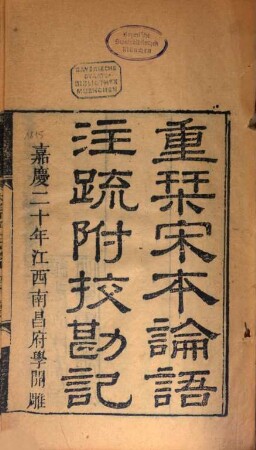 重栞宋本論語
注疏附挍勘記
嘉慶二十年江西南昌府學開雕
BAYERISCHE
STAATS-
BIBLIOTHEK
MUENCHEN